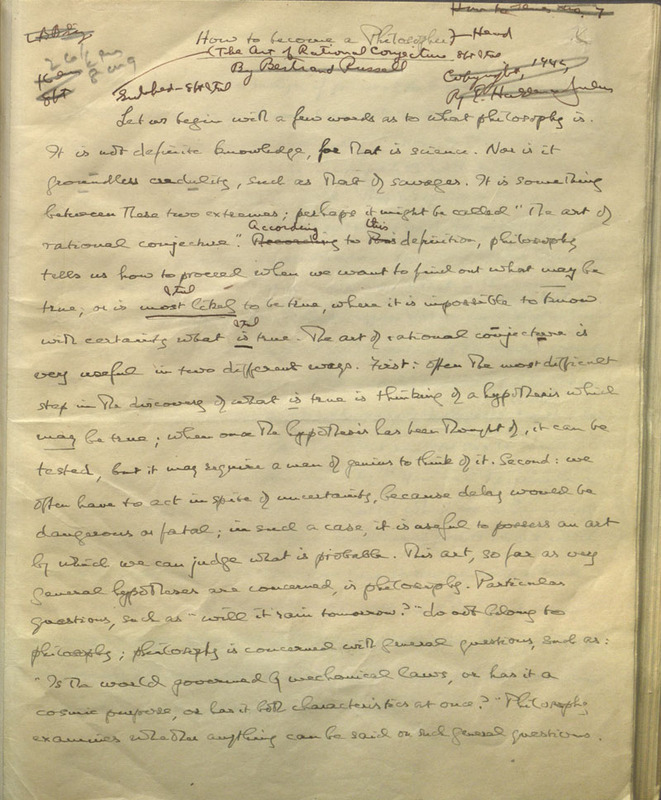 How to become a Philosopher Head
(The Art of Rational Conjecture, 8pt Ital
By Bertrand Russell
Copyright, 1942,
By E. Haldeman-Julius
Subhed - 8pt Ital
Let us begin with a few words as to what philosophy is.
It is not definite knowledge, for that is science. Nor is it
groundless credulity, such as that of savages. It is something
between these two extremes; perhaps it might be called "The art of
rational conjecture". According to this definition, philosophy
tells us how to proceed when we want to find out what may be
true, or is most likely to be true, where it is impossible to know
with certainty what is true. The art of rational conjecture is
very useful in two different ways. First: often the most difficult
step in the discovery of what is true is thinking of a hypothesis which
may be true; when once the hypothesis has been thought of, it can be
tested, but it may require a man of genius to think of it. Second: we
often have to act in spite of uncertainty, because delay would be
dangerous or fatal; in such a case, it is useful to possess an art
by which we can judge what is probable. This art, so far as very
general hypotheses are concerned, is philosophy. Particular
questions, such as "will it rain tomorrow?" do not belong to
philosophy; philosophy is concerned with general questions, such as:
"Is the world governed by mechanical laws, or has it a
cosmic purpose, or has it both characteristics at once?" Philosophy
examines whether anything can be said on such general questions.